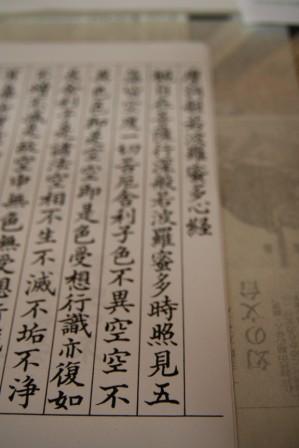 摩訶般若波羅蜜多心経
観自在菩薩行深般若波羅蜜多時照見五
蘊皆空度一切苦厄舎利子色不異空空不
異色色即是空空即是色受想行識亦復如
是舎利子是諸法空相不生不滅不垢不浄
不増不減是故空中無色無受想行
幻の文台